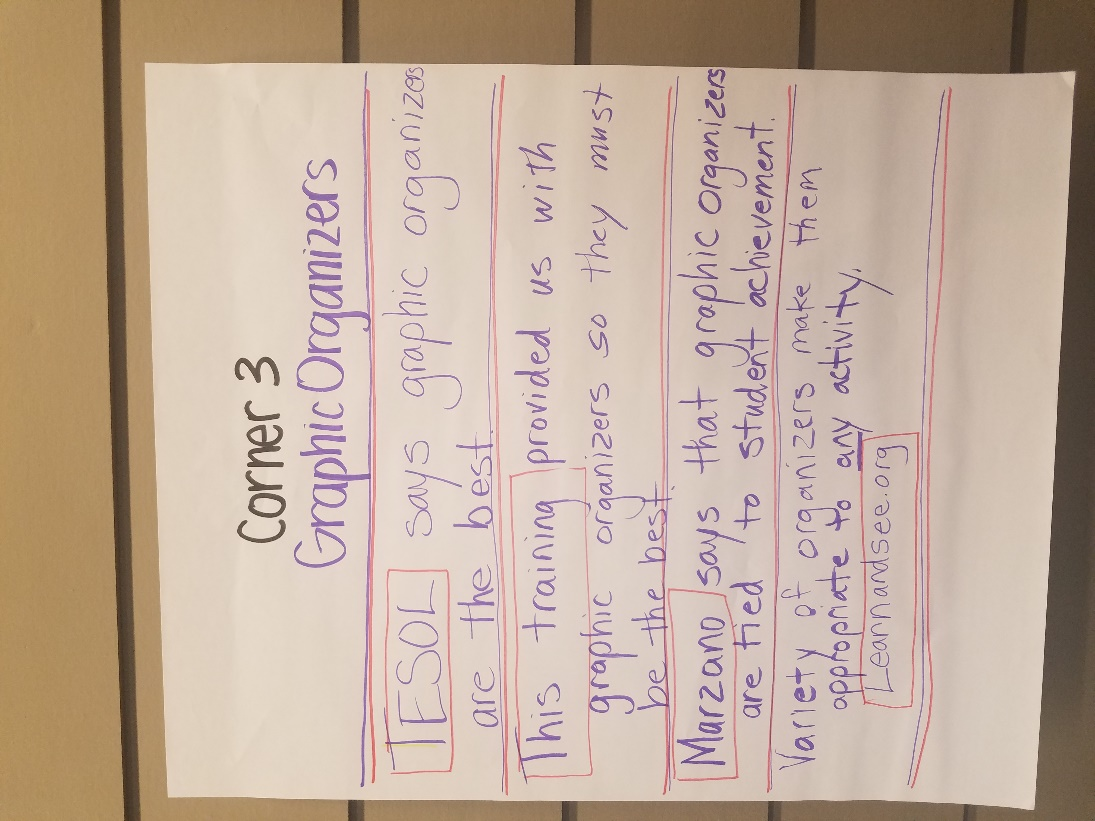 Corner 3
Graphic Organizers
TESOL says graphic organizers
are the best.
This training provided us with
graphic organizers so they must
be the best.
Marzano says that graphic organizers
are tied to student achievement.
Variety of organizers make them
appropriate to any activity.
Learnandsee.org